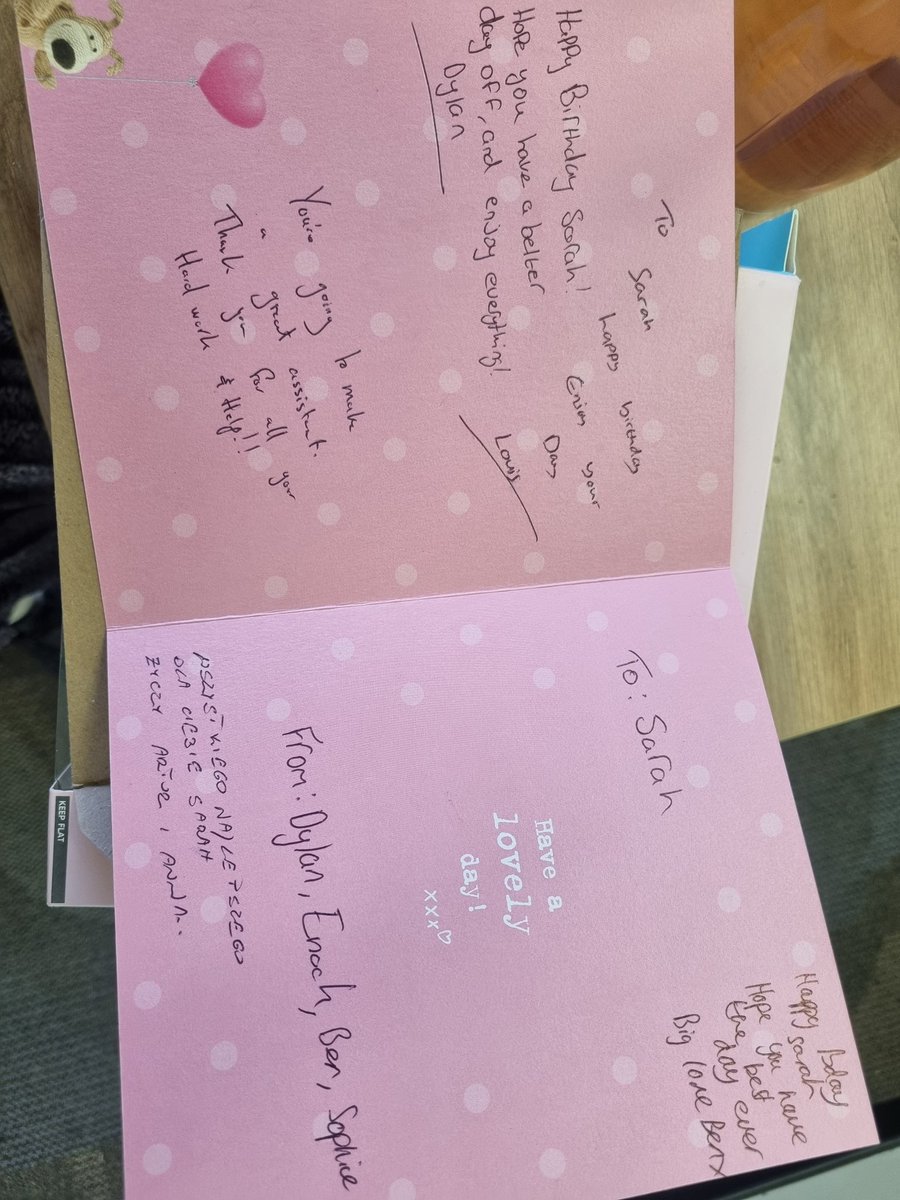 To Sarah
happy birthday
Enjoy your
Day
Louis
Happy Birthday Sarah!
Hope you have a better
day off, and enjoy everything!
Dylan
You're going to make
a great assistant.
Thank you for all your
Hard work & Help!!
Happy Bday
Sarah
Hope you have
the best
day ever
Big love Ben x
To: Sarah
Have a
lovely
day!
xxx♡
From: Dylan, Enoch, Ben, Sophie
WSZYSTKIEGO NAJLEPSZEGO
DLA CIEBIE SARAH
ŻYCZY ARTUR I ANNA..
KEEP FLAT